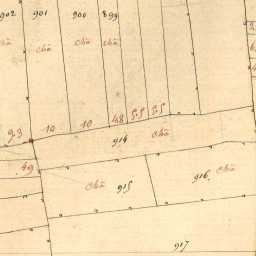 902 901 900 899
Chã Chã Chã Chã
9.3 10 10 4.8 5.5 5.5
914 Chã
49
Chã 915 916 Chã
917